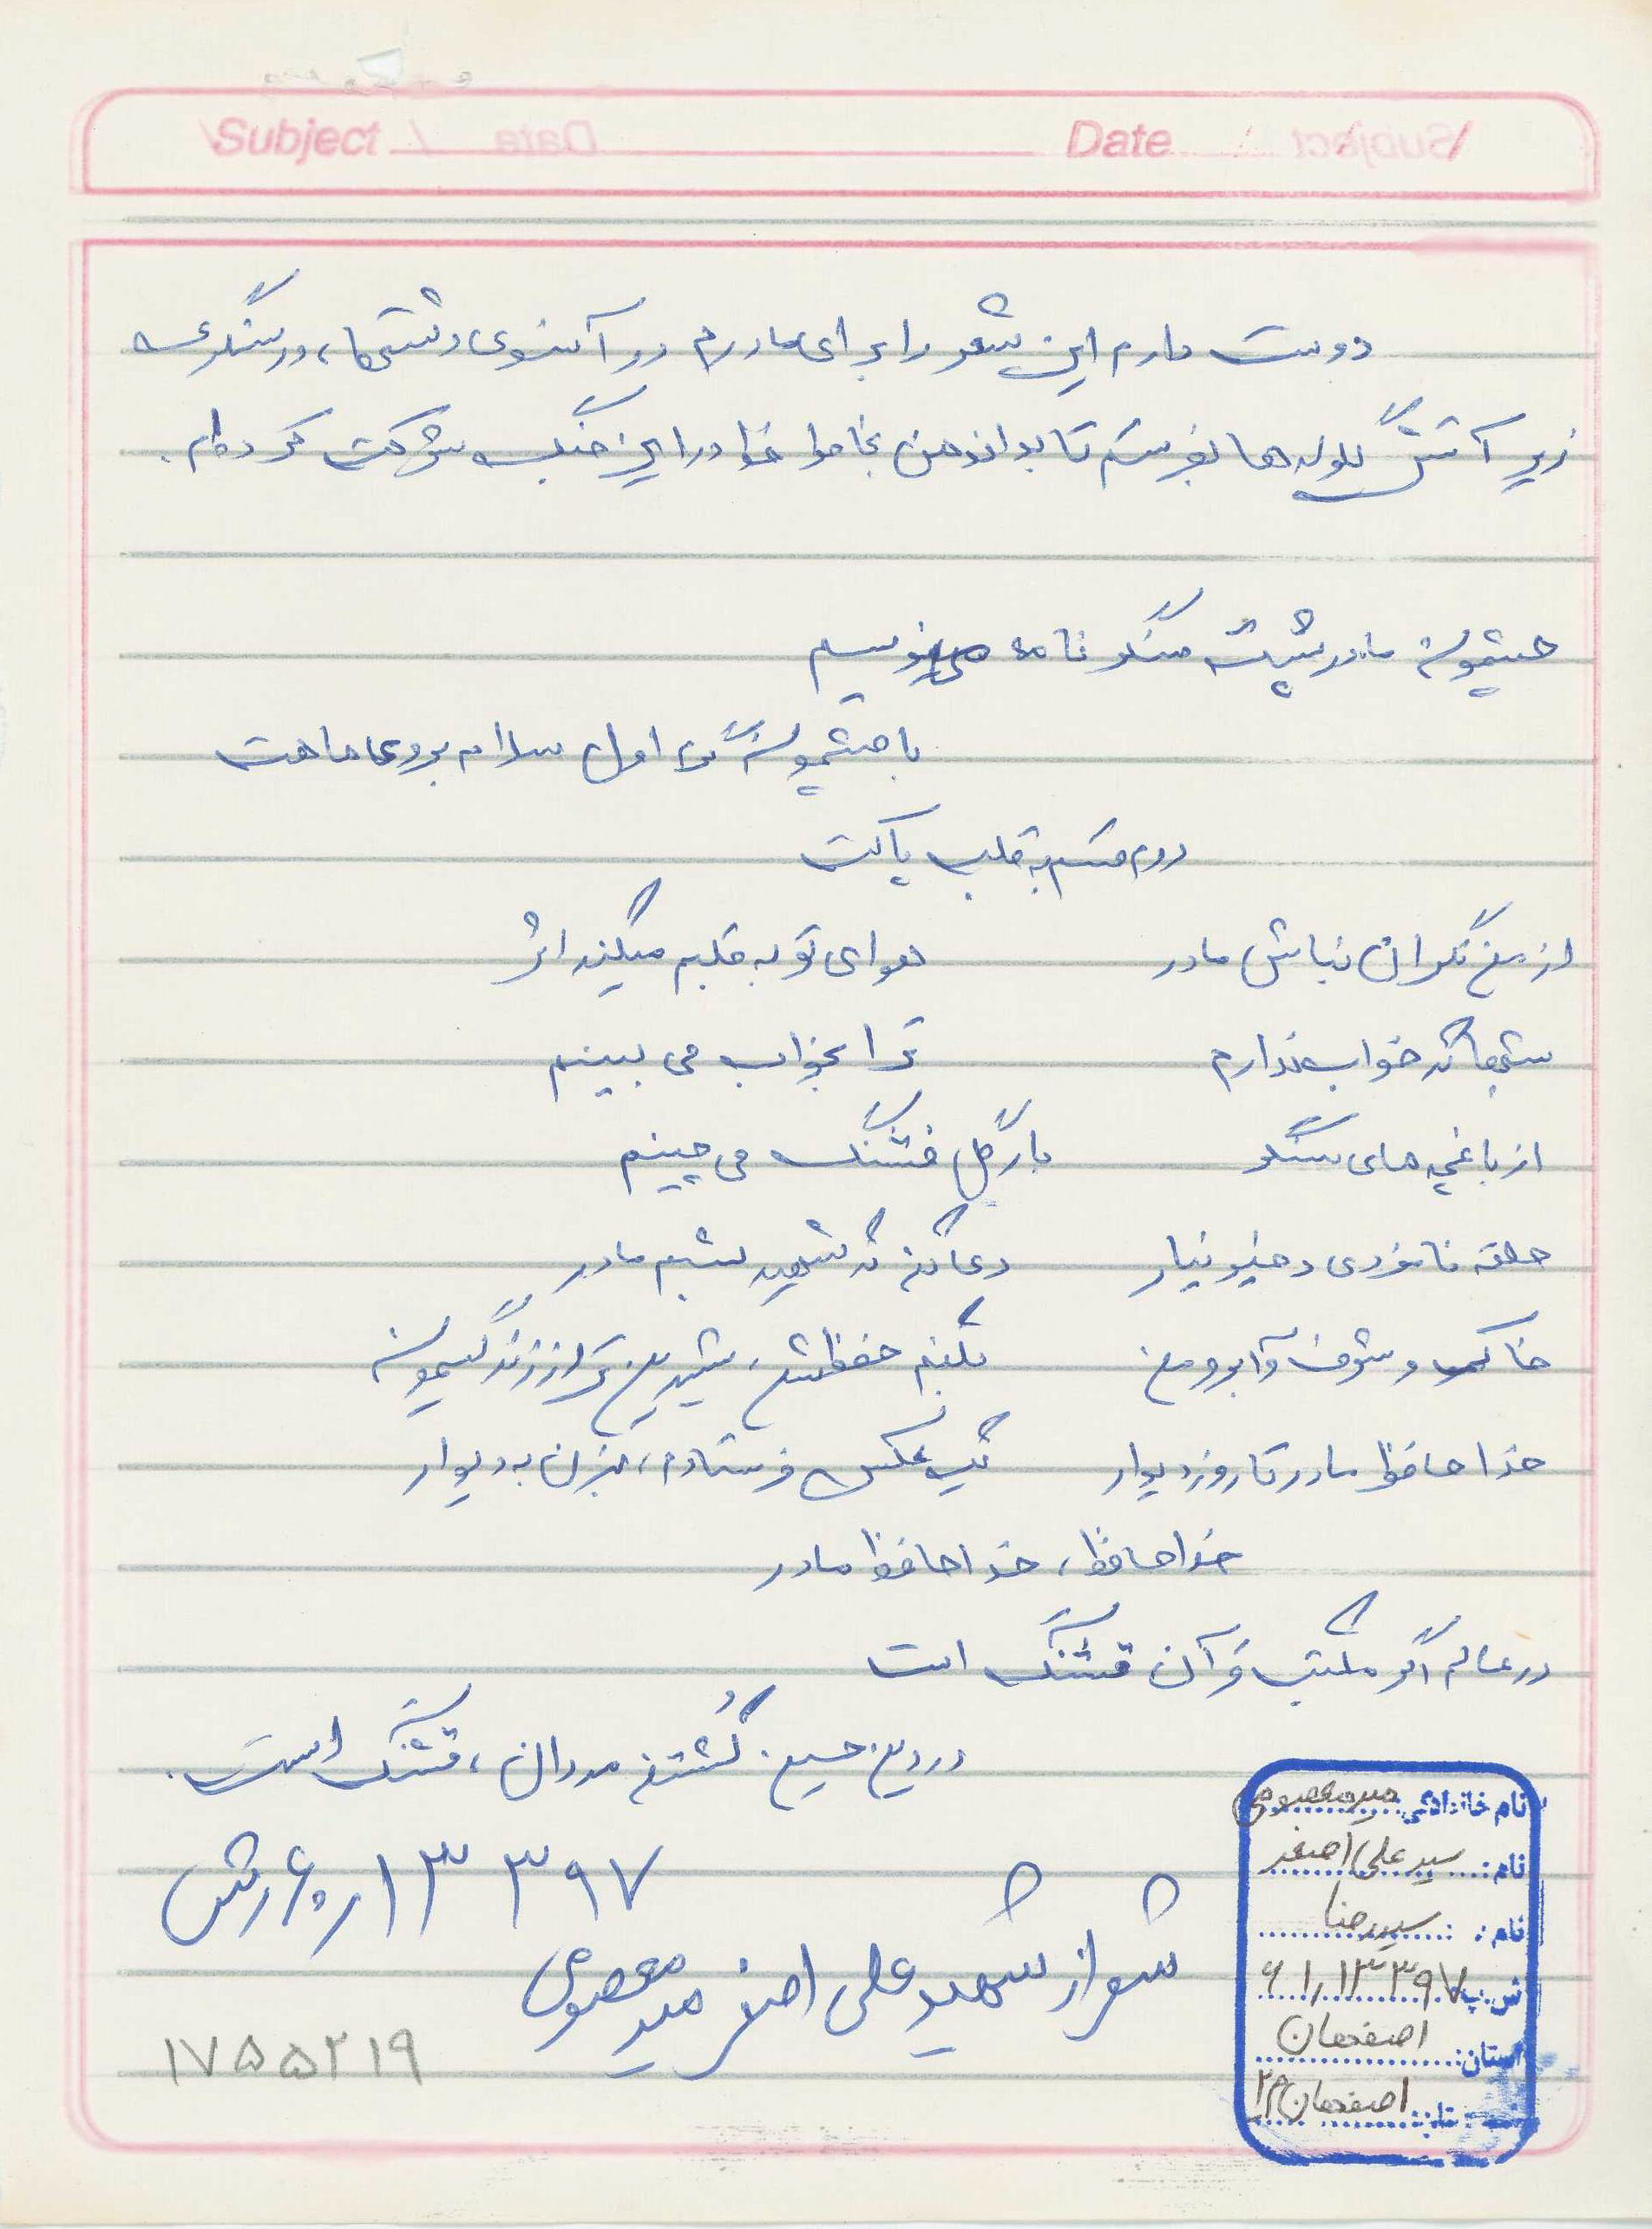 Subject Date
دوست دارم این شعر را برای مادرم در آنسوی دشتها، در سنگری که
زیر آتش گلوله‌ها بفرستم تا بداند من بخاطر خدا در این جنگ شرکت کرده‌ام.
مادر پشت سنگر نامه می‌نویسم
با چشمون تر اول سلام بروی ماهت
دوم قسم به قلب پاکت
از من نگران نباش مادر هوای تو به قلبم میگذاره اثر
شبها که خواب ندارم ترا بخواب می بینم
از باغچه های سنگر بار گل قشنگ می چینم
حلقه نامزدی و خنیو نیار دعا کن که شهید بشم مادر
خاک و شرف و آبرو من نکنم حفظش، شیرین تر از زندگیمونه
خدا حافظ مادر تا روز دیدار یک عکس فرستادم، بزن به دیوار
خداحافظ، خداحافظ مادر
در عالم اگر مکتب قرآن قشنگ است
در دین حسین کُشتن مردان، قشنگ است.
۱۳۳۹۷
شعر از شهید علی اصغر میر معصومی
۱۷۵۵۲۱۹
نام خانوادگی: میرمعصومی
نام: سید علی اصغر
نام: سیدرضا
ش.پ ۶۱٫۱۳۳۹۷
استان: اصفهان
اصفهان ۲۳